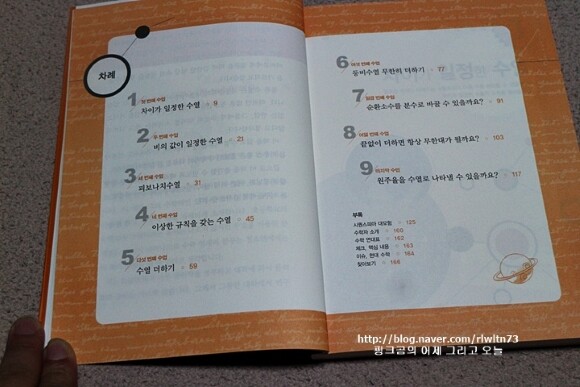 차례
1 첫 번째 수업
차이가 일정한 수열 9
2 두 번째 수업
비의 값이 일정한 수열 21
3 세 번째 수업
피보나치수열 31
4 네 번째 수업
이상한 규칙을 갖는 수열 45
5 다섯 번째 수업
수열 더하기 59
6 여섯 번째 수업
등비수열 무한히 더하기 77
7 일곱 번째 수업
순환소수를 분수로 바꿀 수 있을까요? 91
8 여덟 번째 수업
끝없이 더하면 항상 무한대가 될까요? 103
9 마지막 수업
원주율을 수열로 나타낼 수 있을까요? 117
부록
시퀀스피아 대모험 125
수학자 소개 160
수학 연대표 162
체크, 핵심 내용 163
이슈, 현대 수학 164
찾아보기 166
http://blog.naver.com/rlwltn73
핑크곰의 어제 그리고 오늘